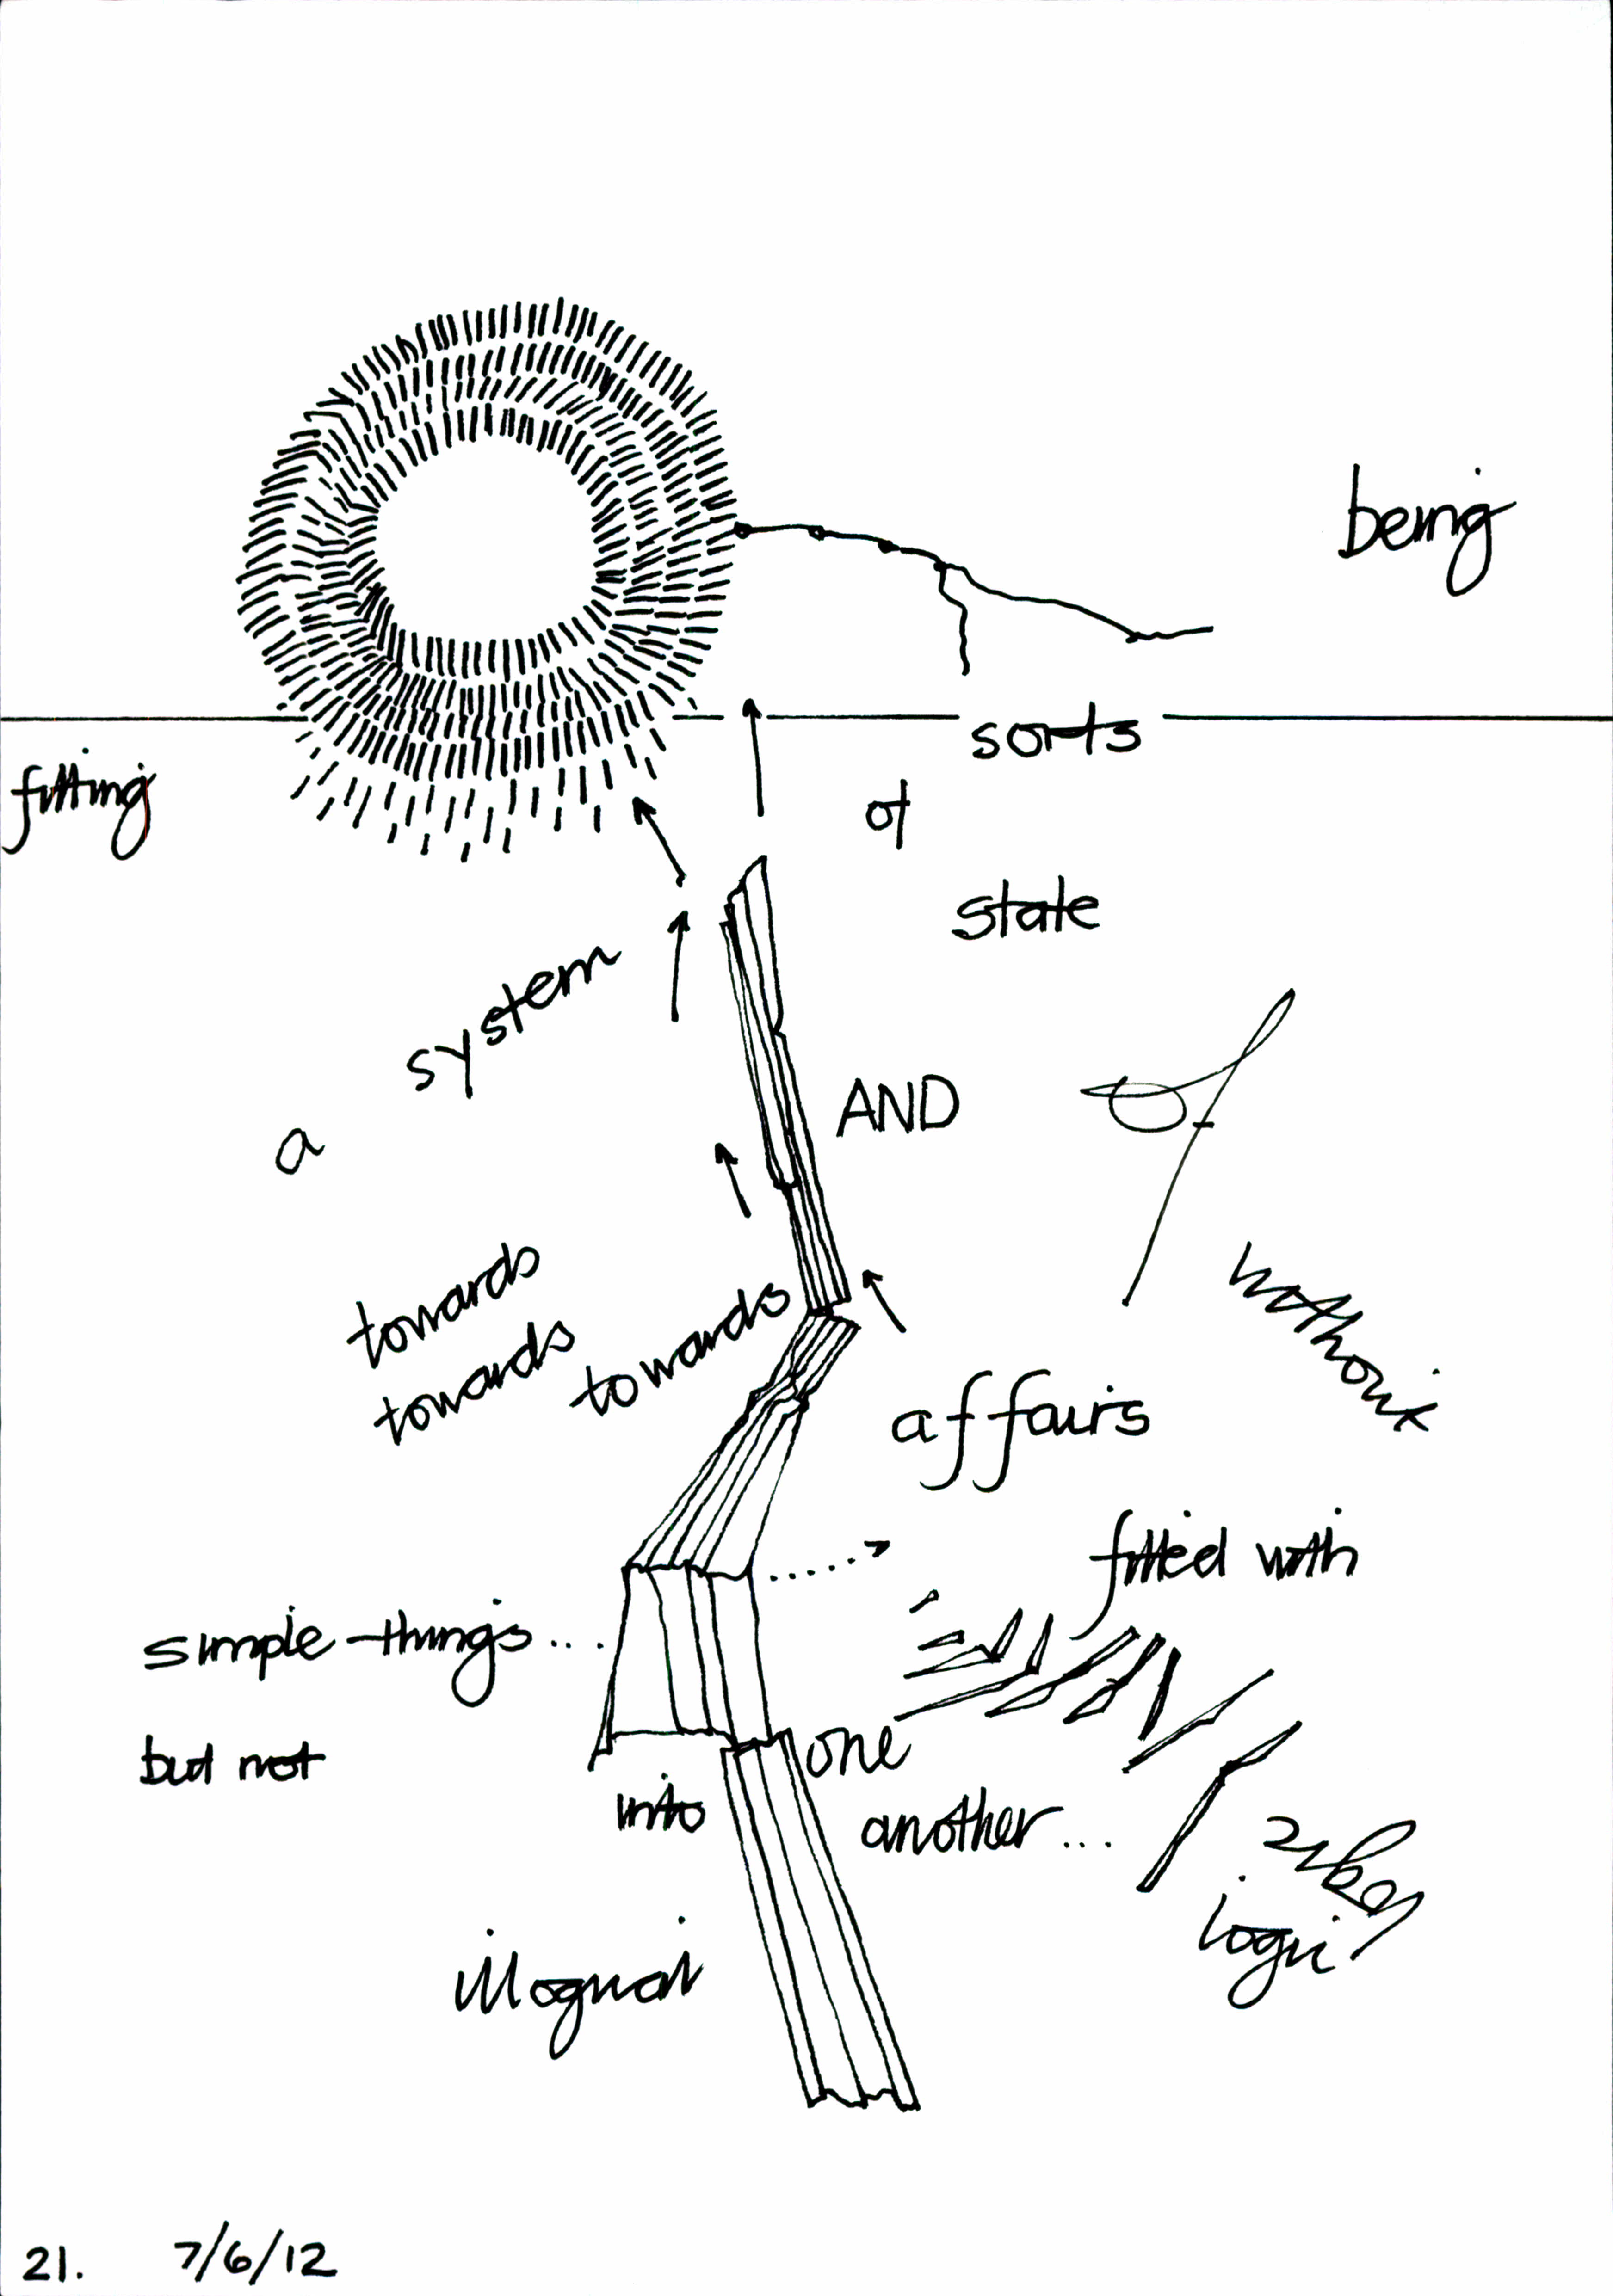 being
fitting
sorts
of
state
system
a
AND
of
towards
towards
towards
affairs
fitted with
simple things...
but not
one
into
another...
illogical
logic
21. 7/6/12